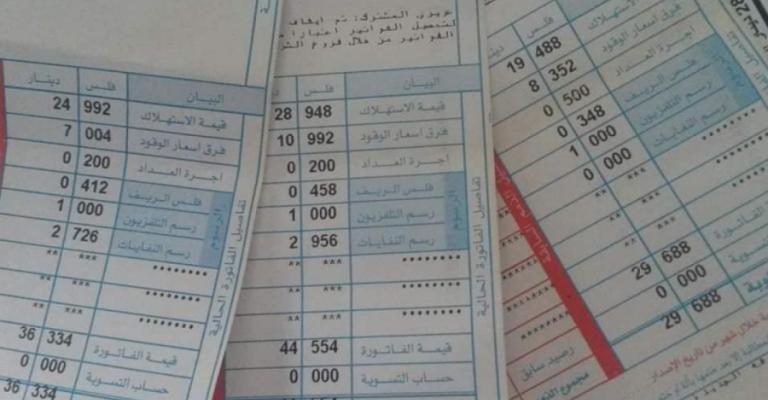 البيان فلس دينار
قيمة الاستهلاك 992 24
فرق اسعار الوقود 004 7
اجرة العداد 200 0
فلس الريف 412 0
رسم التلفزيون 000 1
رسم النفايات 726 2
******** *** **
******** *** **
******** *** **
قيمة الفاتورة 334 36
حساب التسوية 000 0
334 36
الرسوم
تفاصيل الفاتورة الحالية
عزيزي المشترك: تم ايقاف
لتحصيل الفواتير اعتبارا
الفواتير من خلال فروع
البيان فلس
قيمة الاستهلاك 948 28
فرق اسعار الوقود 992 10
اجرة العداد 200 0
فلس الريف 458 0
رسم التلفزيون 000 1
رسم النفايات 956 2
******** *** **
******** *** **
******** *** **
قيمة الفاتورة 554 44
حساب التسوية 000 0
الرسوم
تفاصيل الفاتورة الحالية
قيمة الاستهلاك 488 19
فرق اسعار الوقود 352 8
اجرة العداد 500 0
فلس الريف 348 0
رسم التلفزيون 000 1
رسم النفايات 000 0
******** *** **
******** *** **
******** *** **
الفاتورة 688 29
التسوية 000 0
688 29
رصيد سابق
مجموع
خلال شهر من تاريخ الإصدار